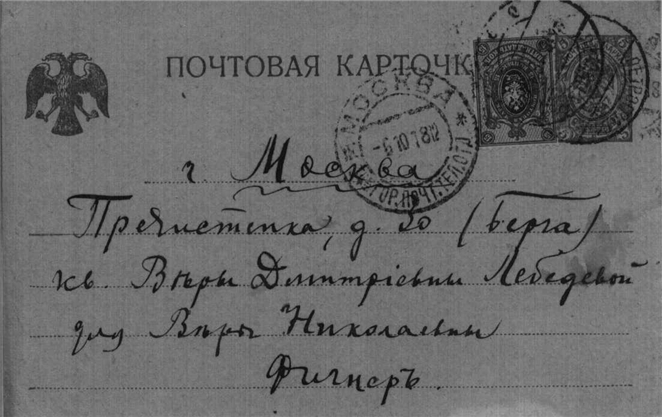 ПОЧТОВАЯ КАРТОЧК
МОСКВА
-6 10 18
г. Москва
Пречистенка, д. 30 (Берга)
кв. Вѣры Дмитріевны Лебедевой
для Вѣры Николаевны
Фигнеръ.